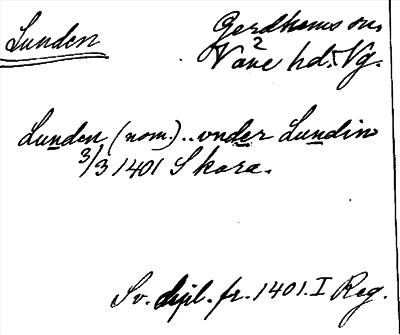 Lunden
Gerdhems sn.
Väne hd. Vg.
2
Lunden (nom.) .. vnder Lundin
3/3 1401 Skara.
Sv. dipl. fr. 1401. I Reg.